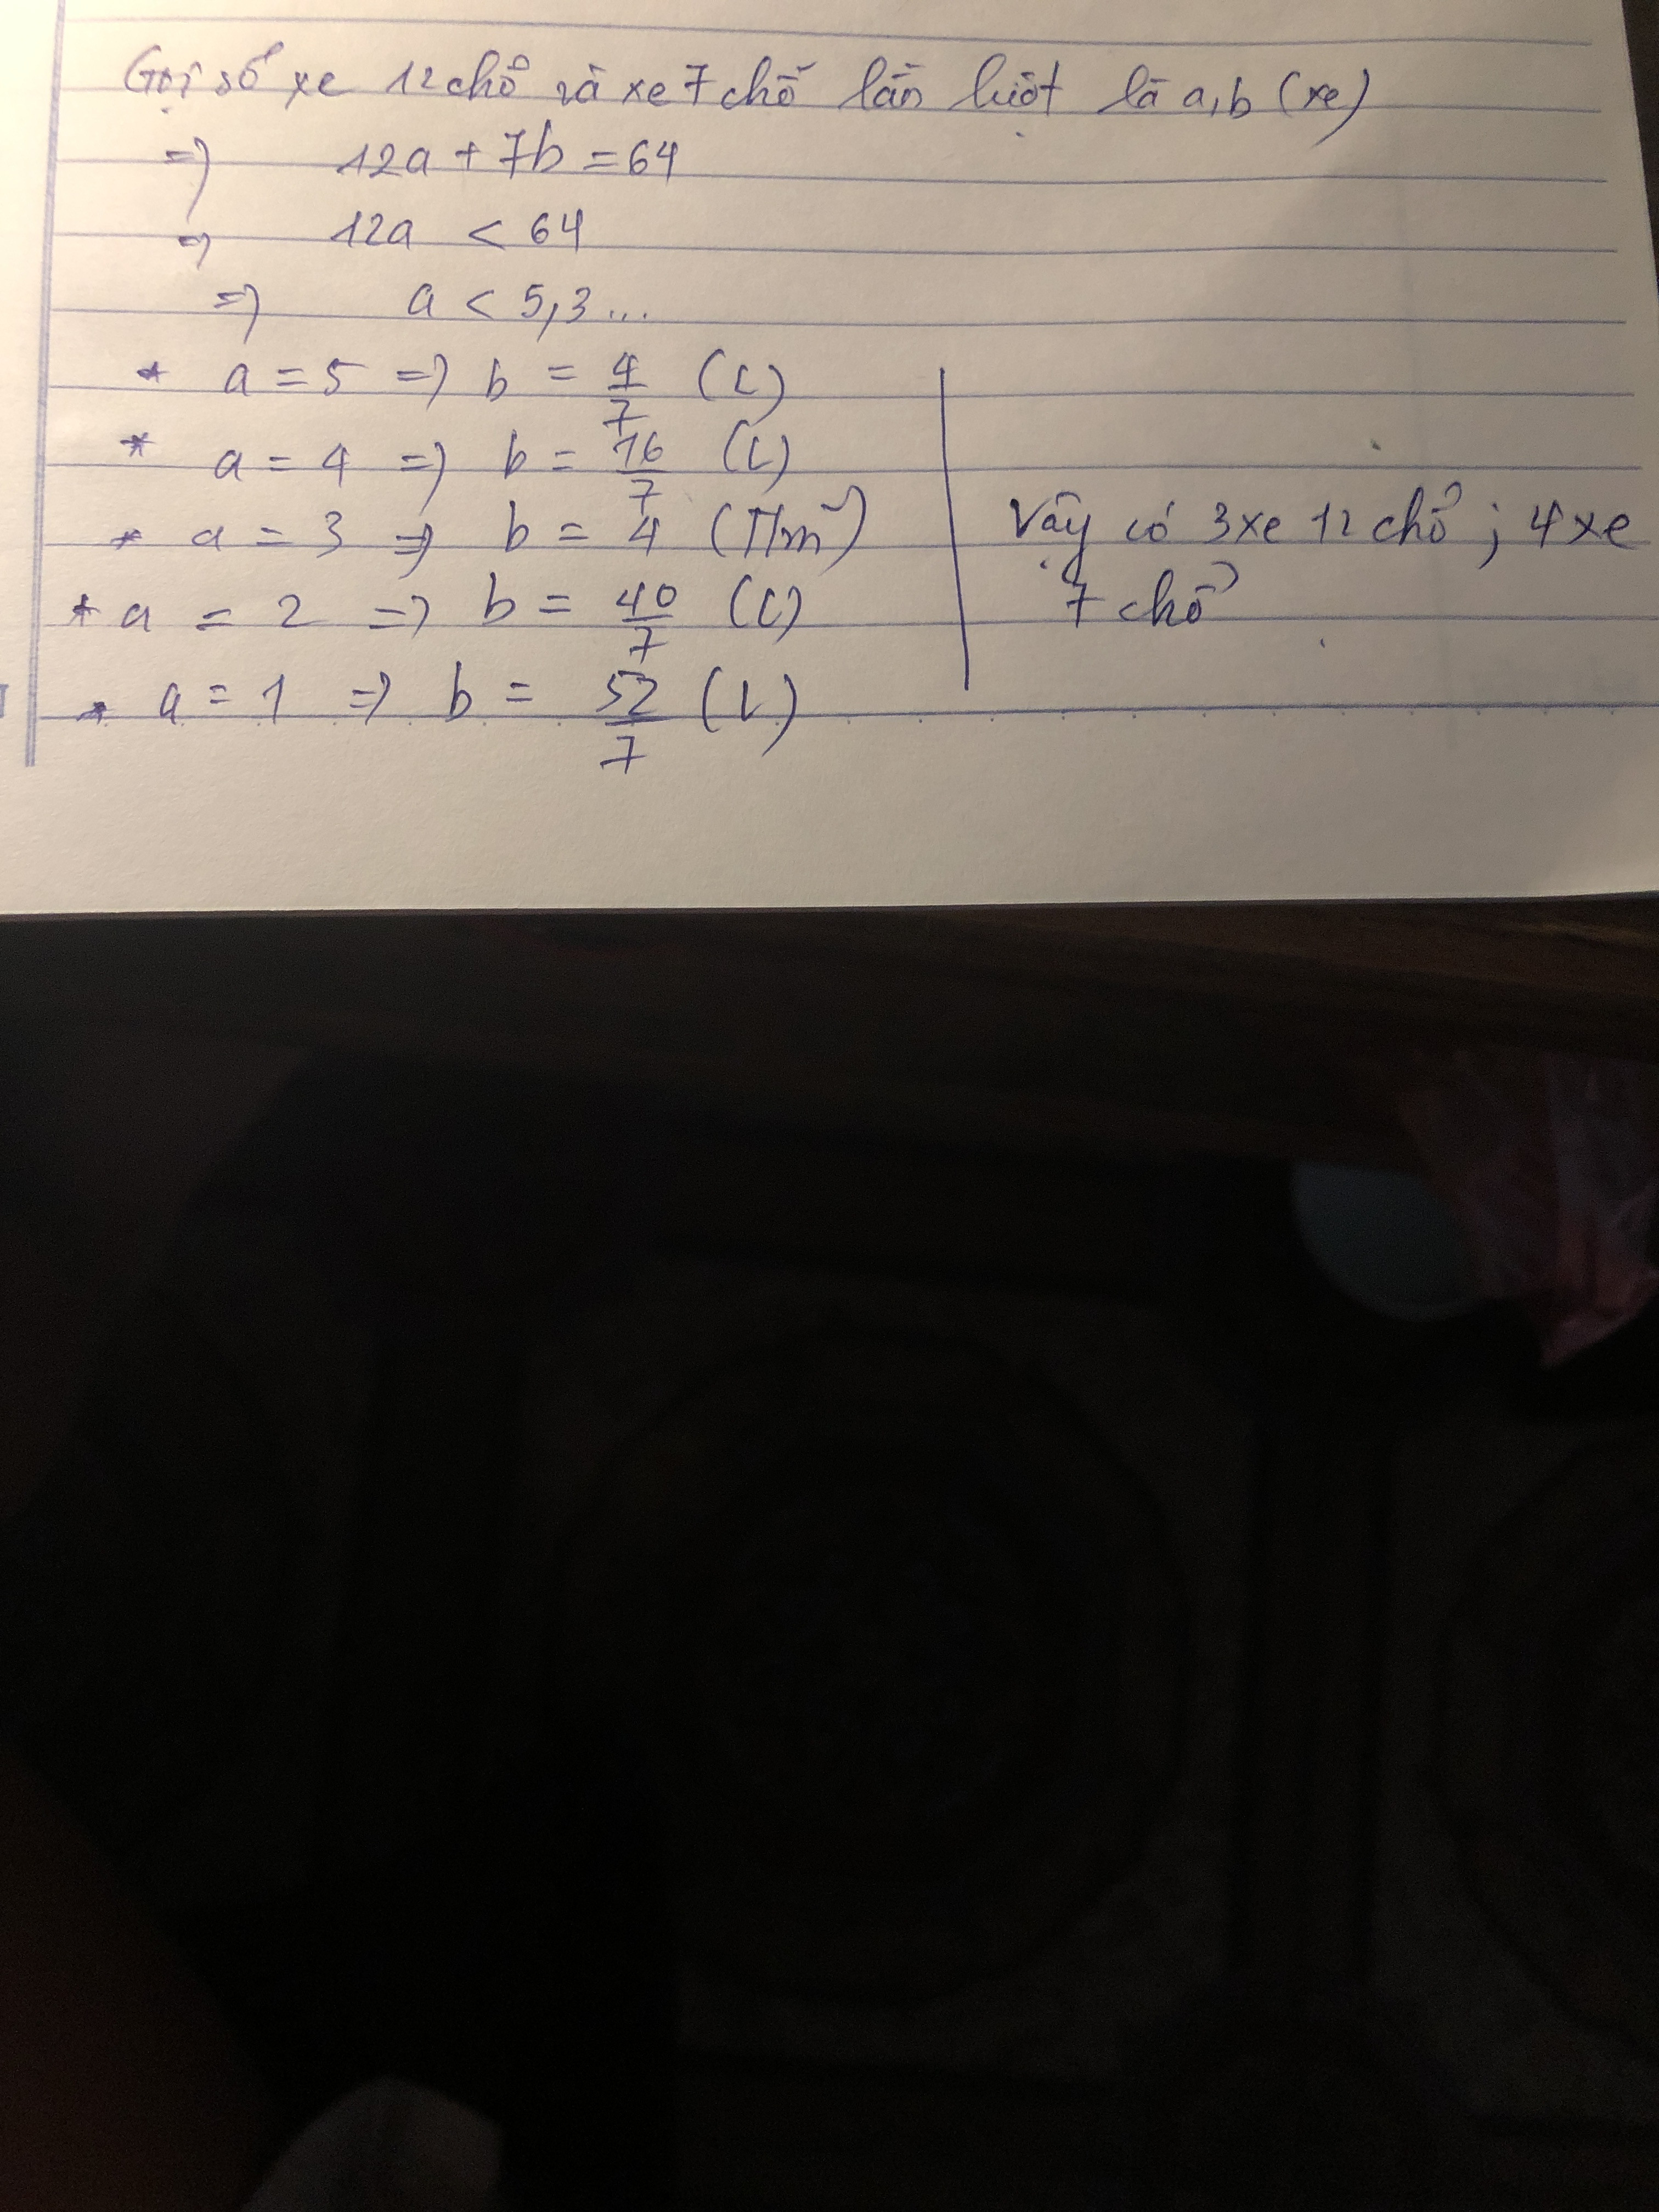 Gọi số xe 12 chỗ và xe 7 chỗ lần lượt là a, b (xe)
=> 12a + 7b = 64
=> 12a < 64
=> a < 5,3...
* a = 5 => b = 4/7 (L)
* a = 4 => b = 16/7 (L)
* a = 3 => b = 4 (T/m)
* a = 2 => b = 40/7 (L)
* a = 1 => b = 52/7 (L)
Vậy có 3 xe 12 chỗ ; 4 xe
7 chỗ